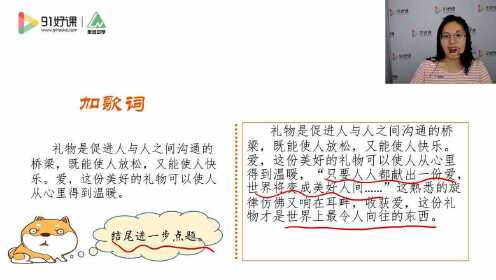 91好课
加歌词
礼物是促进人与人之间沟通的
桥梁，既能使人放松，又能使人快
乐。爱，这份美好的礼物可以使人
从心里得到温暖。
结尾进一步点题。
礼物是促进人与人之间沟通的桥
梁，既能使人放松，又能使人快乐。
爱，这份美好的礼物可以使人从心里
得到温暖，“只要人人都献出一份爱，
世界将变成美好人间……”这熟悉的旋
律仿佛又响在耳畔，收获爱，这份礼
物才是世界上最令人向往的东西。